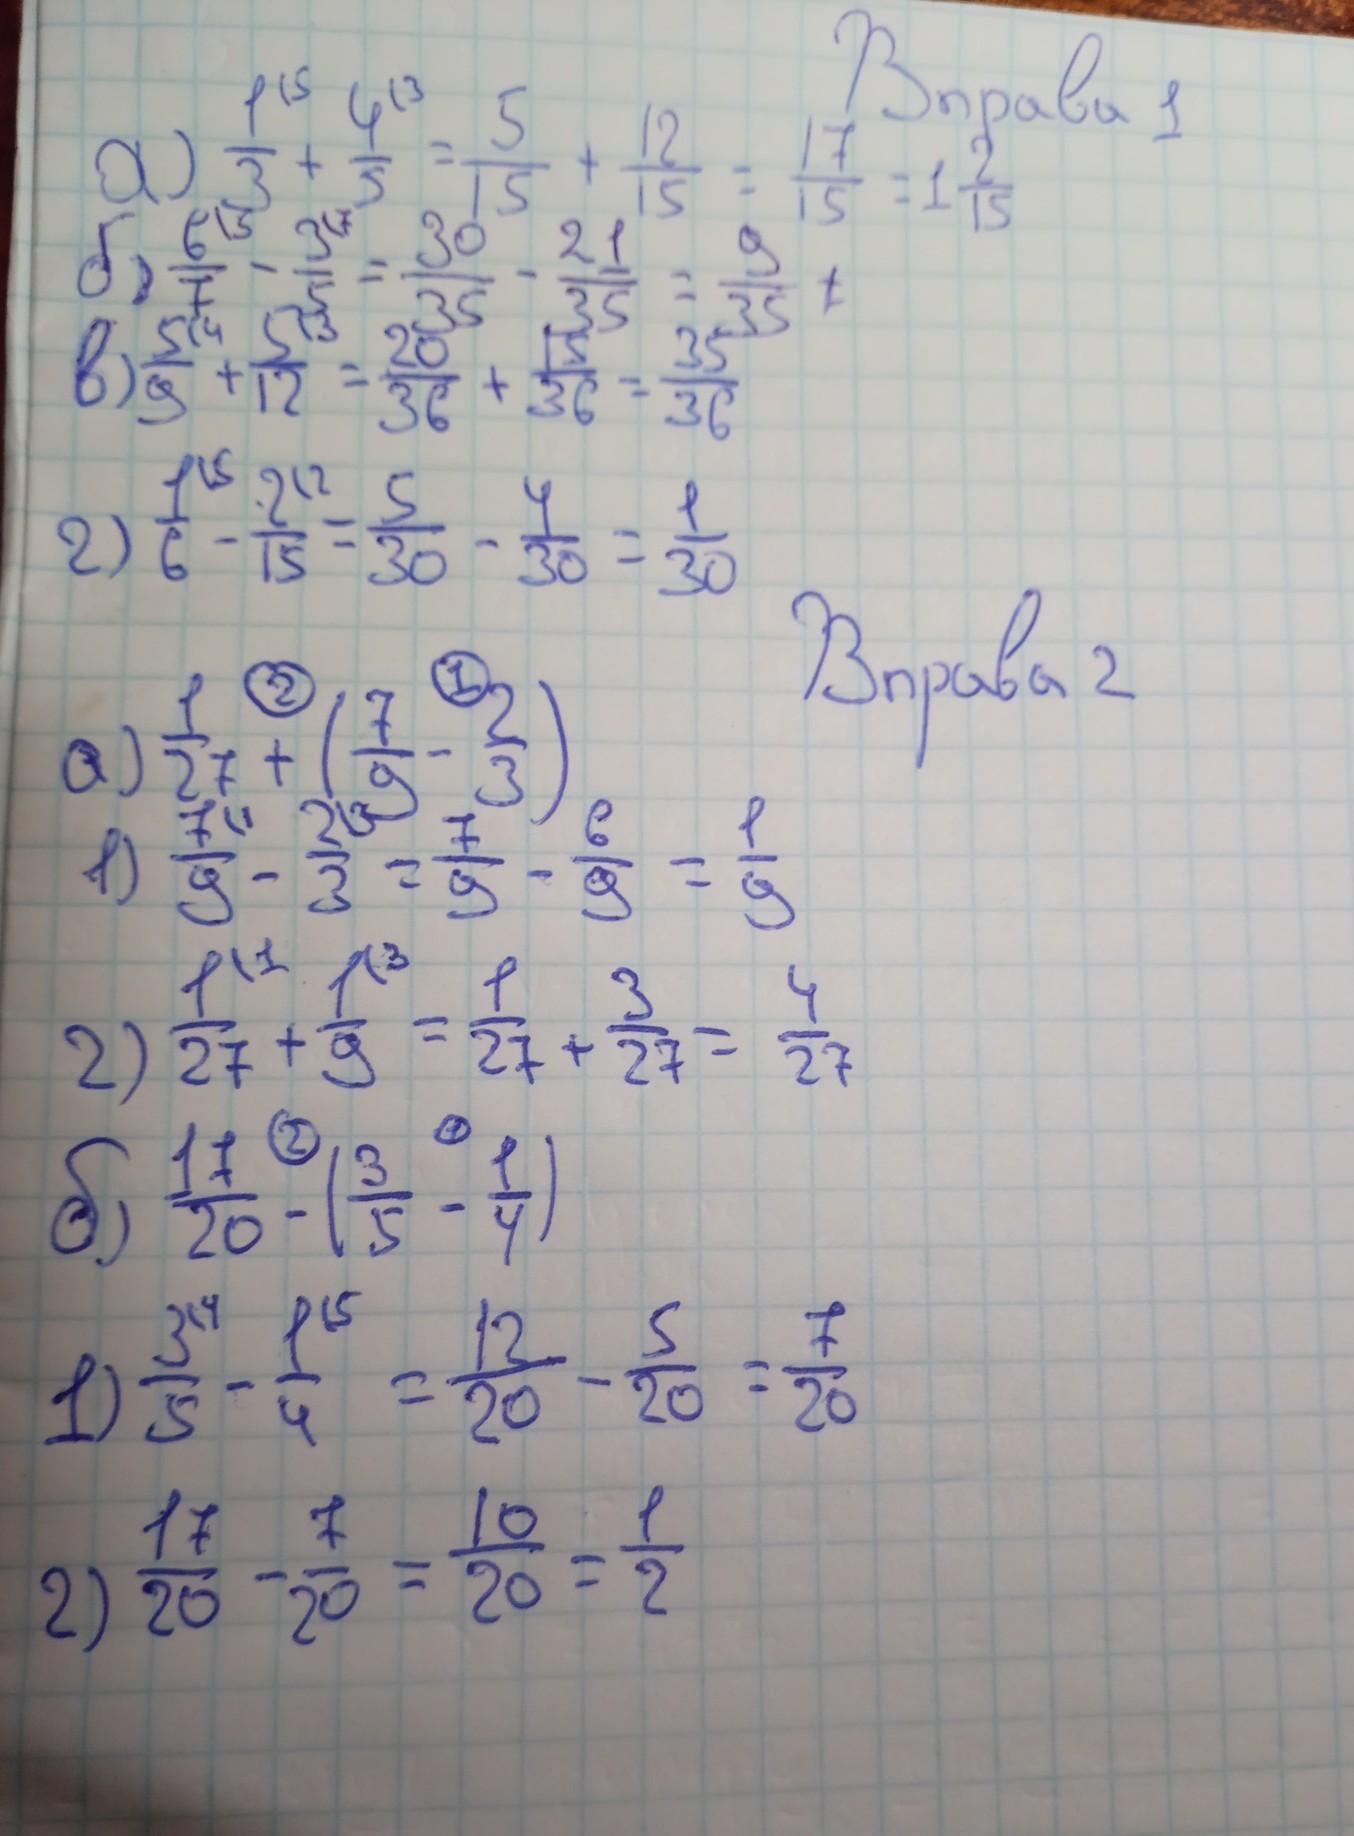 Вправа 1
а) 1/3 (5 + 4/5 (3 = 5/15 + 12/15 = 17/15 = 1 2/15
б) 6/7 (5 - 3/5 (7 = 30/35 - 21/35 = 9/35 +
в) 5/9 (4 + 5/12 (3 = 20/36 + 15/36 = 35/36
г) 1/6 (5 - 2/15 (2 = 5/30 - 4/30 = 1/30
Вправа 2
а) 1/27 + ② (7/9 - ① 2/3)
1) 7/9 (1 - 2/3 (3 = 7/9 - 6/9 = 1/9
2) 1/27 (1 + 1/9 (3 = 1/27 + 3/27 = 4/27
б) 17/20 - ② (3/5 - ① 1/4)
1) 3/5 (4 - 1/4 (5 = 12/20 - 5/20 = 7/20
2) 17/20 - 7/20 = 10/20 = 1/2